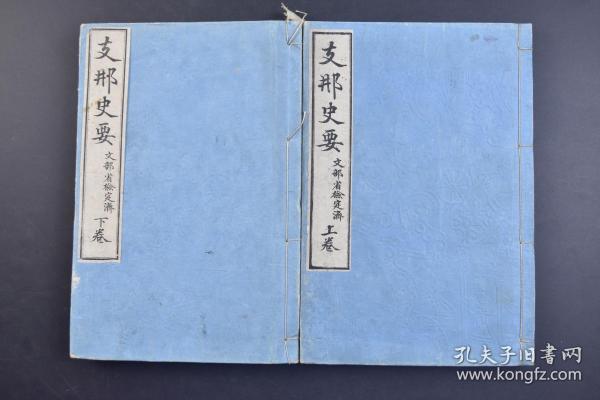 支那史要
文部省檢定濟
上卷
支那史要
文部省檢定濟
下卷
孔夫子旧书网
www.kongfz.com